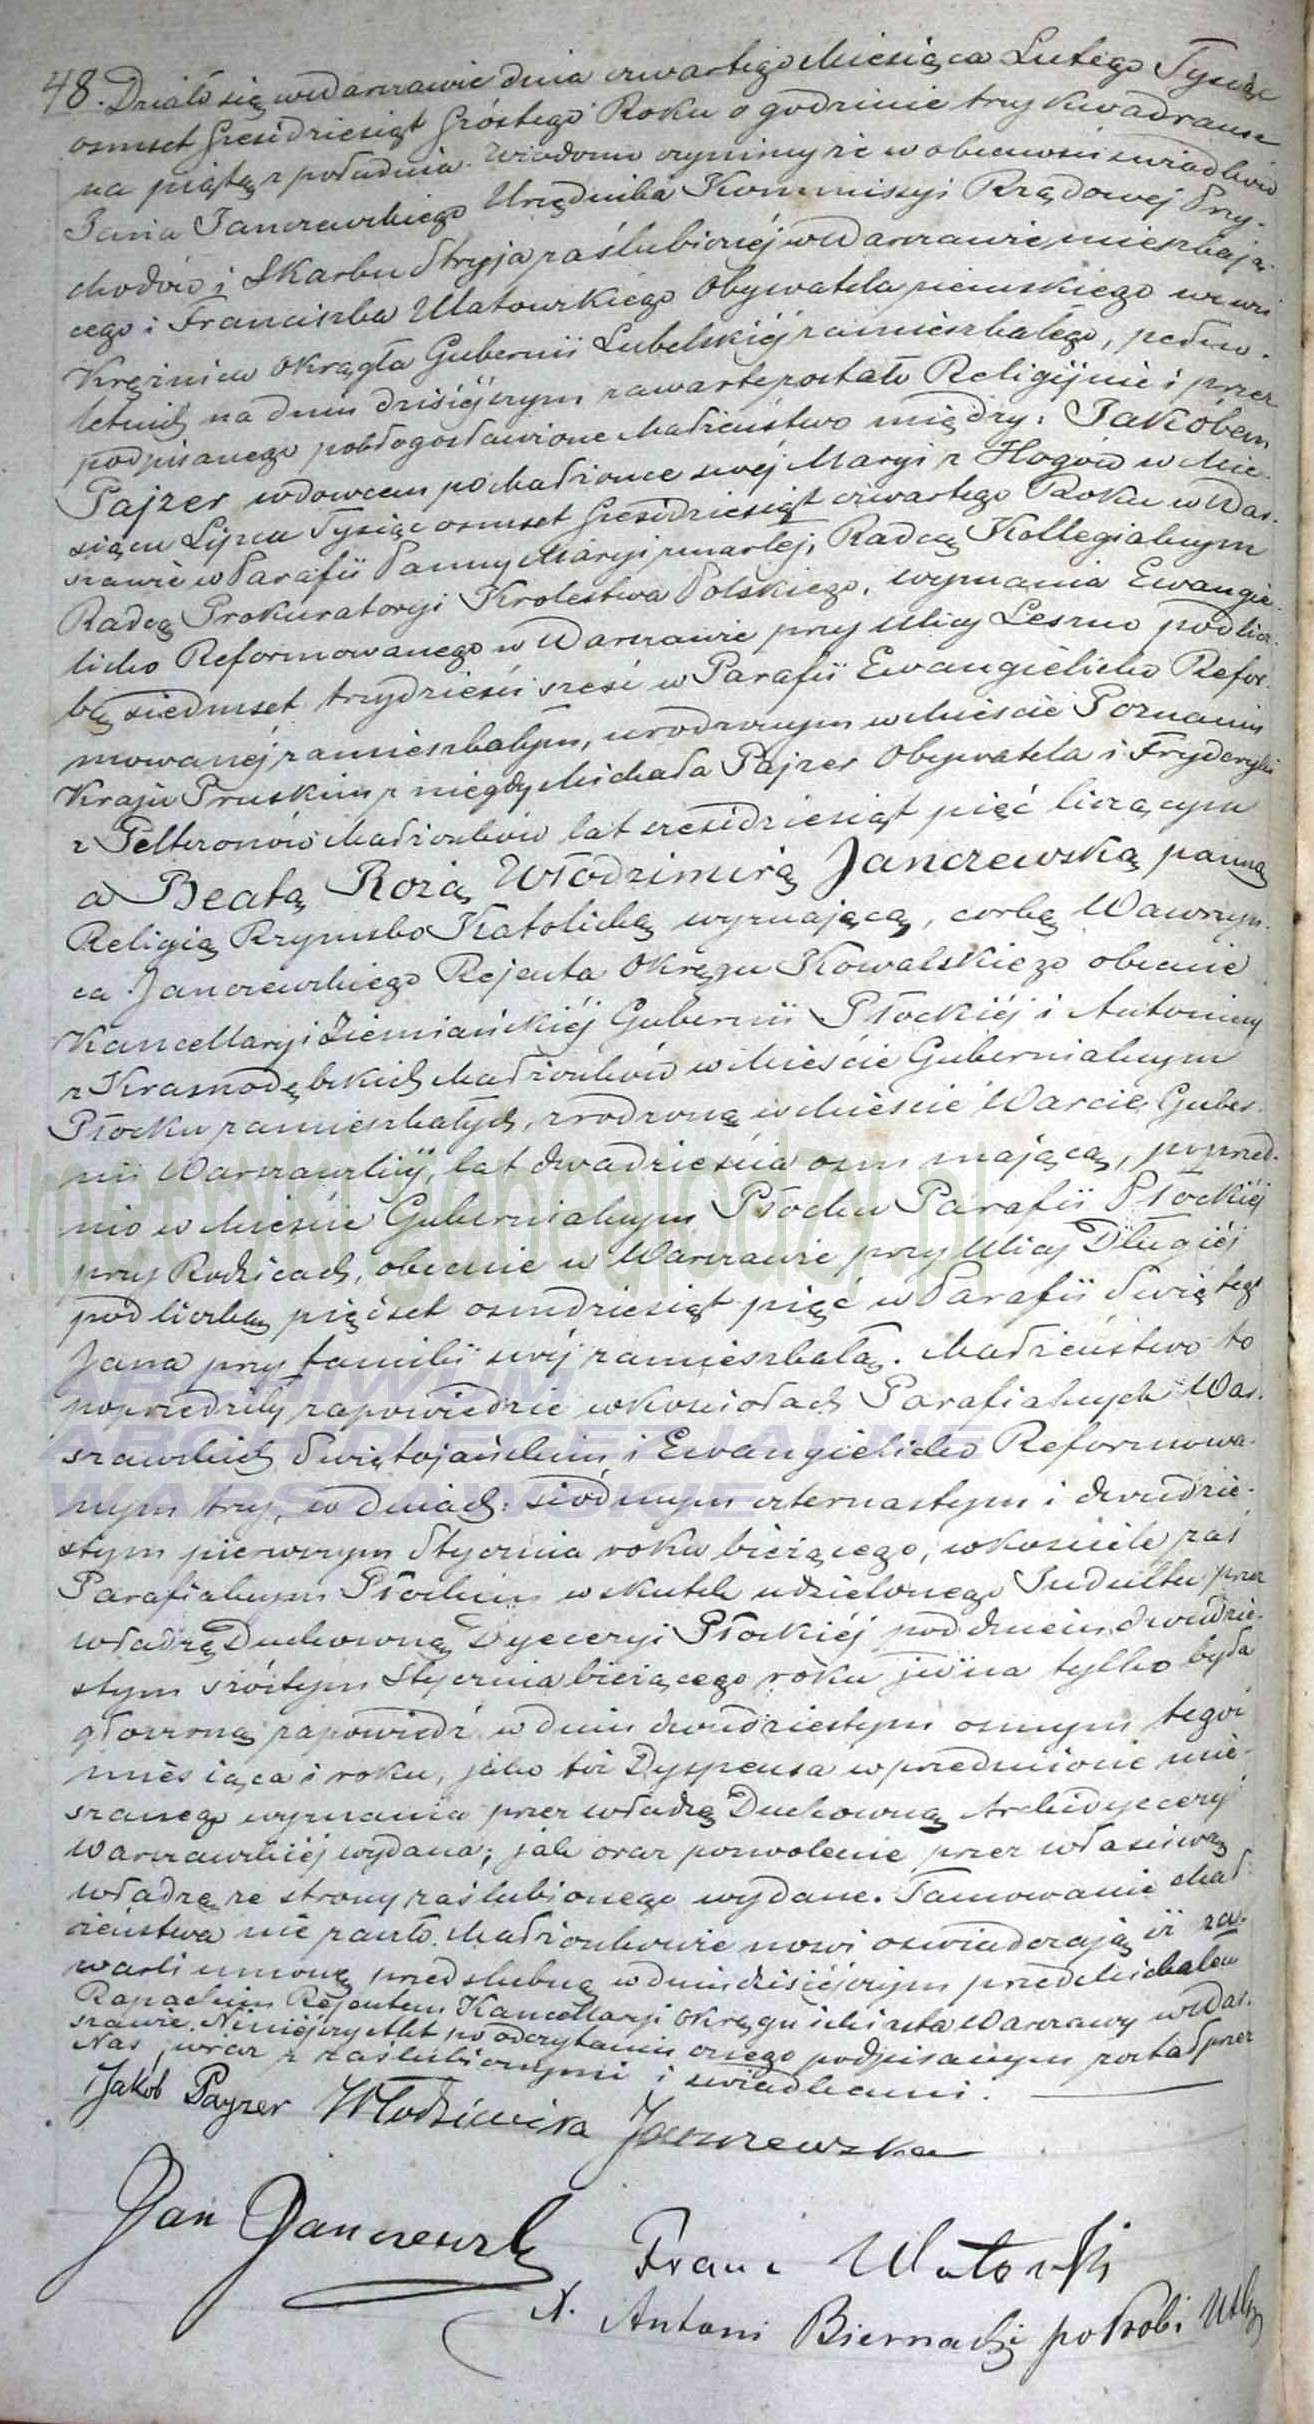 48. Działo się w Warszawie dnia czwartego Miesiąca Lutego Tysiąc
osmset sześćdziesiąt szóstego Roku o godzinie trzy kwadranse
na piątą z południa. Wiadomo czynimy że w obecności świadków
Jana Janczewskiego Urzędnika Kommissyi Rządowej Przy-
chodów i Skarbu Stryja zaślubionej w Warszawie mieszkają-
cego i Franciszka Ulatowskiego Obywatela ziemskiego we wsi
Krężnica Okrągła Gubernii Lubelskiéj zamieszkałego, pełno-
letnich na dniu dzisiéjszym zawarte zostało Religijnie i przez
podpisanego pobłogosławione Małżeństwo między: Jakóbem
Pajzer wdowcem po Małżonce swéj Maryi z Hogów w Mie-
siącu Lipcu Tysiąc osmset sześćdziesiąt czwartego Roku w War-
szawie w Parafii Panny Maryi zmarłej, Radcą Kollegialnym
Radcą Prokuratoryi Krolestwa Polskiego, wyznania Ewangie-
licko Reformowanego w Warszawie przy Ulicy Leszno pod licz-
bą siedmset trzydzieści sześć w Parafii Ewangielicko Refor-
mowanéj zamieszkałym, urodzonym w Mieście Poznaniu
Kraju Pruskim z niegdy Michała Pajzer Obywatela i Fryderyki
z Małżonków lat sześćdziesiąt pięć liczącym
a Beatą Rozą Włodzimirą Janczewską panną
Religią Rzymsko Katolicką wyznającą, corką Wawrzyń-
ca Janczewskiego Rejenta Okręgu Kowalskiego obecnie
Kancellaryi Ziemiańskiéj Gubernii Płockiéj i Antoniny
z Krasnodębskich Małżonków w Mieście Gubernialnym
Płocku zamieszkałych, zrodzoną w Mieście Warcie Guber-
nii Warszawskiéj, lat dwadzieścia osm mającą, poprzed-
nio w Mieście Gubernialnym Płocku Parafii Płockiéj
przy Rodzicach, obecnie w Warszawie przy Ulicy Długiéj
pod liczbą pięćset osmdziesiąt pięć w Parafii Świętego
Jana przy familii swéj zamieszkałą. Małżeństwo to
poprzedziły zapowiedzie w kościołach Parafialnych War-
szawskich Świętojańskim i Ewangielicko Reformowa-
nym trzy, w dniach: siódmym czternastym i dwudzie-
stym pierwszym Stycznia roku bieżącego, w kościele zaś
Parafialnym Płockim w skutek udzielonego Indultu przez
władzę Duchowną Dyecezyi Płockiéj pod dniem dwudzie-
stym szóstym Stycznia bieżącego roku jedna tylko była
głoszoną zapowiedź w dniu dwudziestym osmym tegoż
miesiąca i roku, jako też Dyspensa w przedmiocie mie-
szanego wyznania przez władzę Duchowną Archidyecezyi
Warszawskiéj wydana; jak oraz pozwolenie przez właściwą
władzę ze strony zaślubionego wydane. Tamowanie Mał-
żeństwa nie zaszło. Małżonkowie nowi oświadczają iż za-
warli umowę przedślubną w dniu dzisiéjszym przed Michałem
Rapackim Rejentem Kancellaryi Okręgu i Miasta Warszawy w War-
szawie. Niniéjszy Akt po odczytaniu onego podpisanym został przez
Nas, wraz z zaślubionymi i świadkami.
Jakób Payzer Włodzimira Janczewska
Jan Janczewski
Franc Ulatowski
X. Antoni Biernacki